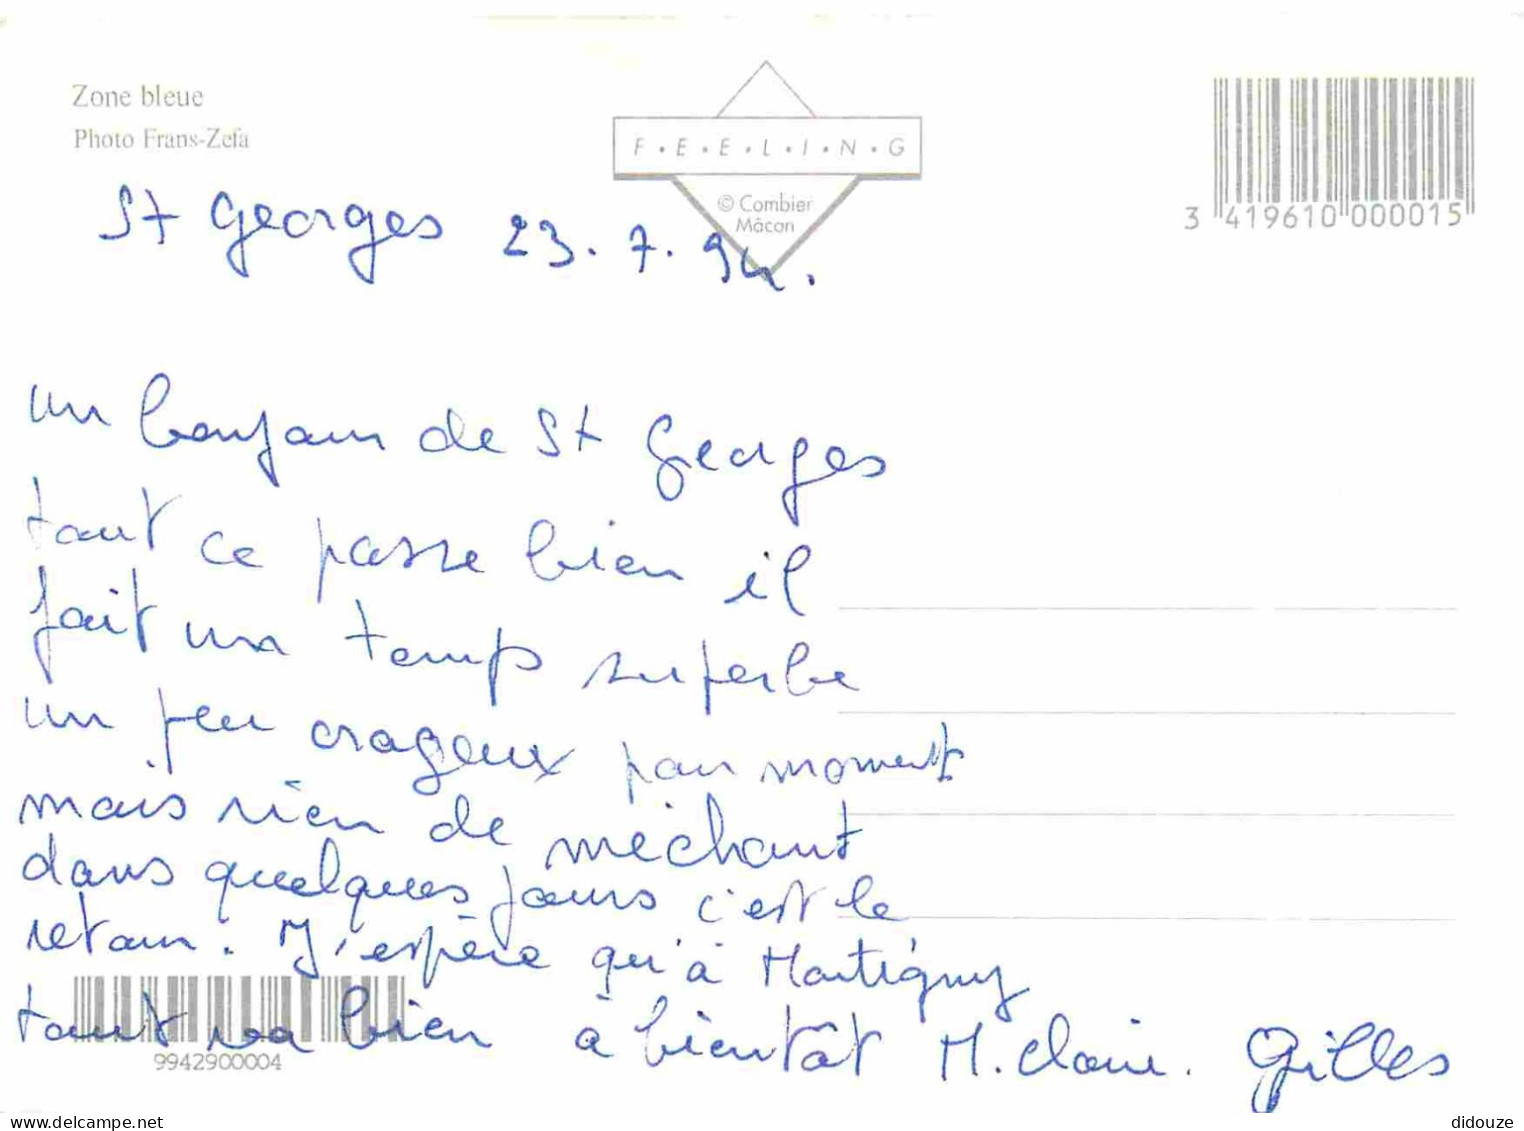 Zone bleue
Photo Frans-Zefa
F•E•E•L•I•N•G
© Combier
Mâcon
3 419610 000015
St Georges 23.7.94.
un bonjour de St Georges
tout ce passe bien il
fait un temps superbe
un peu orageux par moment
mais rien de méchant
dans quelques jours c'est le
retour. J'espère qu'à Martigny
tout va bien à bientôt M.claire. Gilles
9942900004
didouze